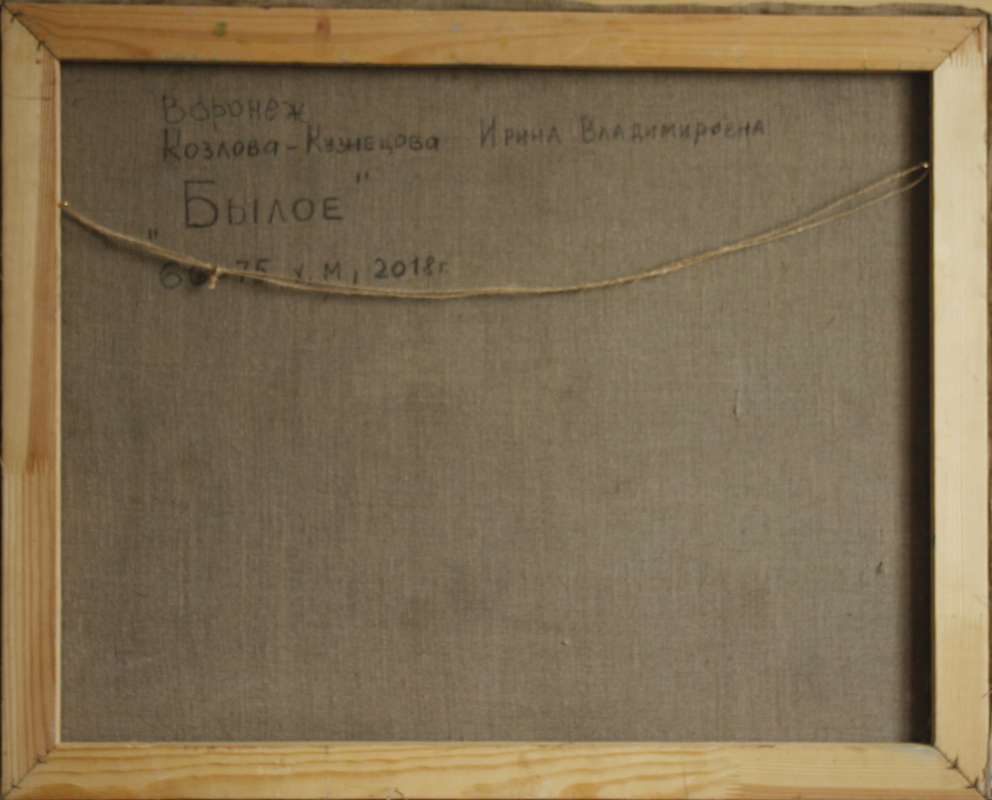 Воронеж
Козлова-Кузнецова Ирина Владимировна
„Былое"
75 х.м, 2018г.